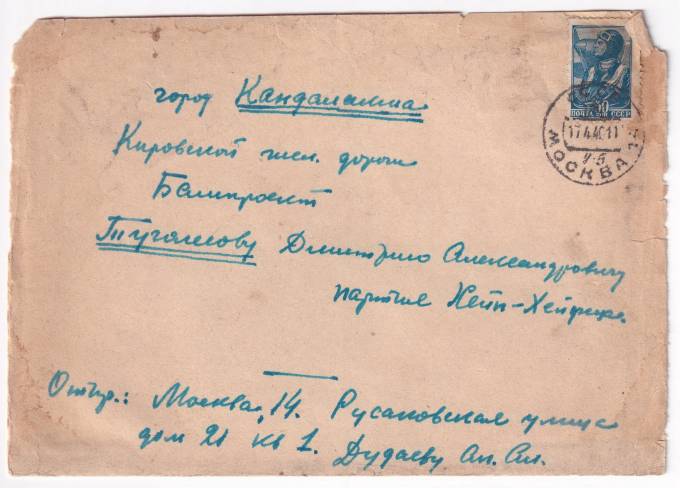 город Кандалакша
Кировской жел. дороги
Балтпроект
Тугаринову Дмитрию Александровичу
партия
Отпр.: Москва, 14. Русаковская улица
дом 21 кв 1. Дудаеву Ал. Ал.
ПОЧТА СССР
17.4.40.11
МОСКВА